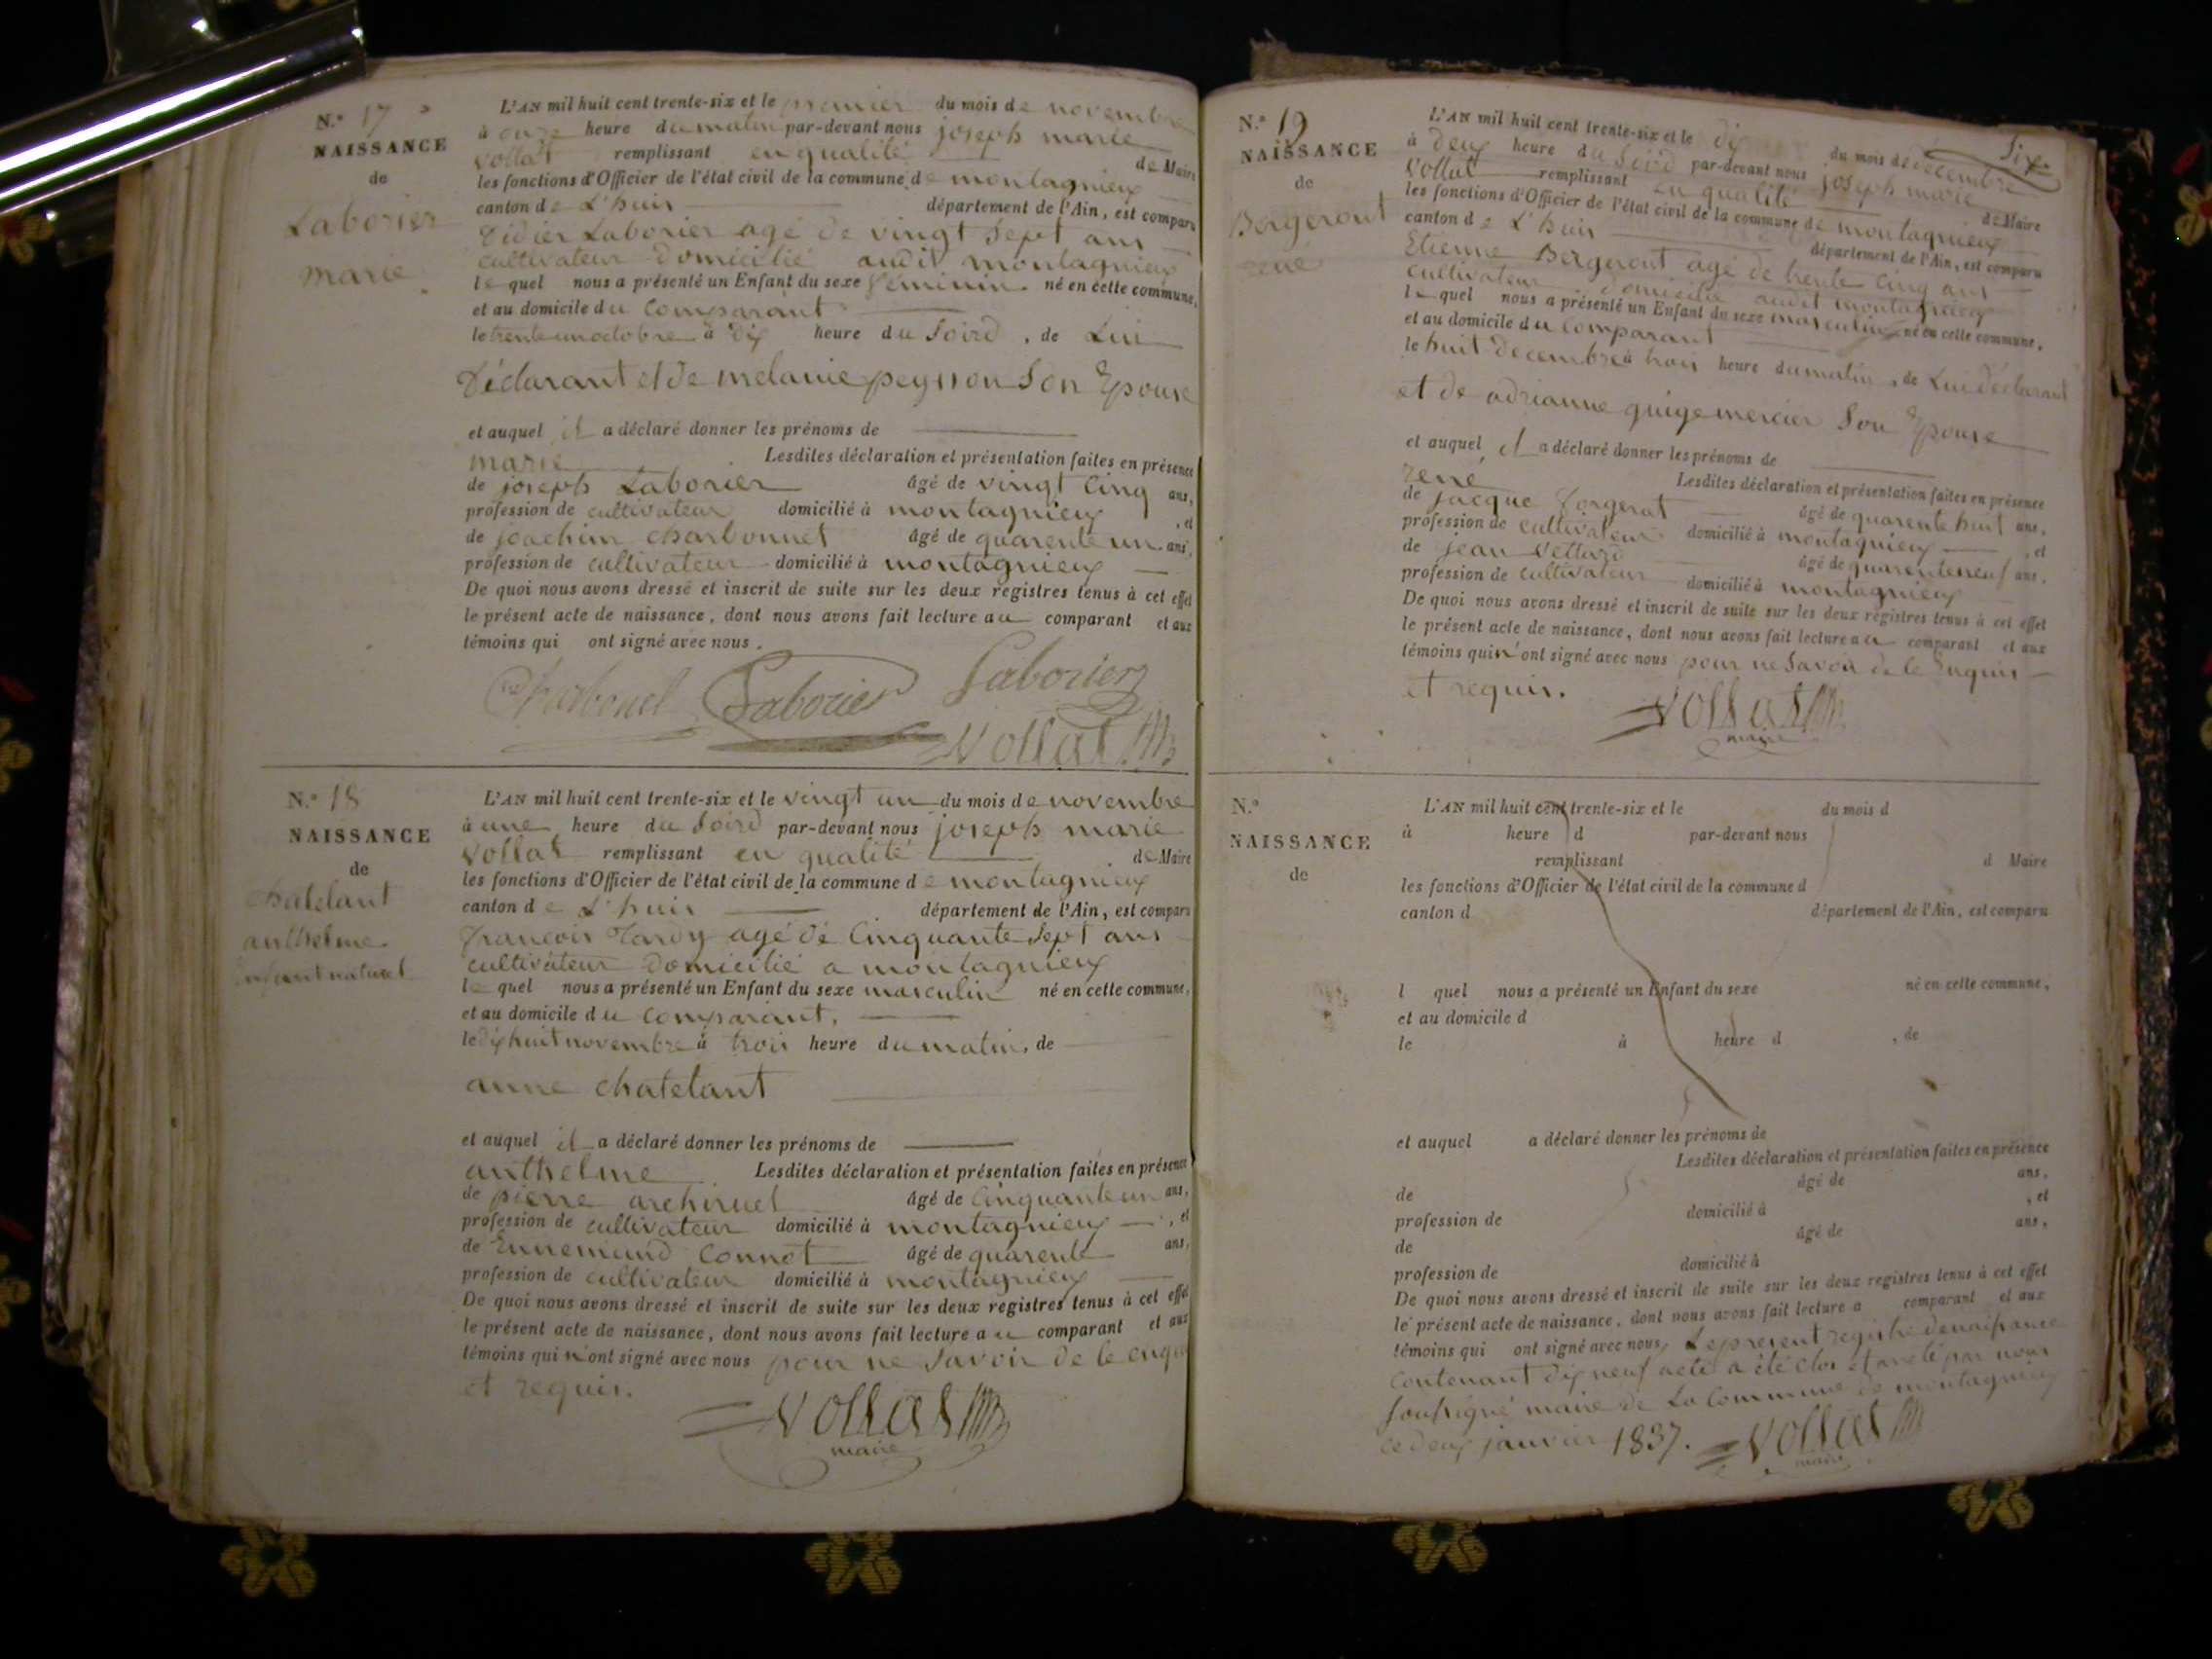 N.º 17
NAISSANCE
de
Laborier
marie
L'AN mil huit cent trente-six et le premier du mois de novembre
à onze heure du matin par-devant nous joseph marie
vollat remplissant en qualité de Maire
les fonctions d'Officier de l'état civil de la commune de montagnieux
canton de L'huis département de l'Ain, est comparu
Didier Laborier agé de vingt sept ans
cultivateur domicilié audit montagnieux
lequel nous a présenté un Enfant du sexe féminin né en cette commune,
et au domicile du comparant
le trente un octobre à dix heure du soird, de Lui
Déclarant et de melanie peysson son Epouse
et auquel il a déclaré donner les prénoms de
marie Lesdites déclaration et présentation faites en présence
de joseph Laborier âgé de vingt cinq ans,
profession de cultivateur domicilié à montagnieux, et
de joachim charbonnet âgé de quarente un ans,
profession de cultivateur domicilié à montagnieux
De quoi nous avons dressé et inscrit de suite sur les deux registres tenus à cet effet
le présent acte de naissance, dont nous avons fait lecture au comparant et aux
témoins qui ont signé avec nous.
Charbonel Laborier Laborier
Vollat
N.º 18
NAISSANCE
de
chatelant
anthelme
Enfant naturel
L'AN mil huit cent trente-six et le vingt un du mois de novembre
à une heure du soird par-devant nous joseph marie
vollat remplissant en qualité de Maire
les fonctions d'Officier de l'état civil de la commune de montagnieux
canton de L'huis département de l'Ain, est comparu
françois Tardy agé de cinquante sept ans
cultivateur domicilié a montagnieux
lequel nous a présenté un Enfant du sexe masculin né en cette commune,
et au domicile du comparant,
le dix huit novembre à trois heure du matin, de
anne chatelant
et auquel il a déclaré donner les prénoms de
anthelme Lesdites déclaration et présentation faites en présence
de pierre archiruel âgé de cinquante un ans,
profession de cultivateur domicilié à montagnieux, et
de Ennemund connot âgé de quarente ans,
profession de cultivateur domicilié à montagnieux
De quoi nous avons dressé et inscrit de suite sur les deux registres tenus à cet effet
le présent acte de naissance, dont nous avons fait lecture au comparant et aux
témoins qui n'ont signé avec nous pour ne savoir de le enquis
et requis.
Vollat
maire
six
N.º 19
NAISSANCE
de
Bergeront
rené
L'AN mil huit cent trente-six et le dix du mois de decembre
à deux heure du soird par-devant nous joseph marie
vollat remplissant en qualité de Maire
les fonctions d'Officier de l'état civil de la commune de montagnieux
canton de L'huis département de l'Ain, est comparu
Etienne Bergeront agé de trente cinq ans
cultivateur domicilié audit montagnieux
lequel nous a présenté un Enfant du sexe masculin né en cette commune,
et au domicile du comparant
le huit decembre à trois heure du matin, de Lui déclarant
et de adrianne guigemercier son Epouse
et auquel il a déclaré donner les prénoms de
rené Lesdites déclaration et présentation faites en présence
de jacque forgerat âgé de quarente huit ans,
profession de cultivateur domicilié à montagnieux, et
de jean vettard âgé de quarenteneuf ans,
profession de cultivateur domicilié à montagnieux
De quoi nous avons dressé et inscrit de suite sur les deux registres tenus à cet effet
le présent acte de naissance, dont nous avons fait lecture au comparant et aux
témoins qui n'ont signé avec nous pour ne savoir de le Enquis
et requis.
Vollat
maire
N.º
NAISSANCE
de
L'AN mil huit cent trente-six et le du mois d
à heure d par-devant nous
remplissant d Maire
les fonctions d'Officier de l'état civil de la commune d
canton d département de l'Ain, est comparu
l quel nous a présenté un Enfant du sexe né en cette commune,
et au domicile d
le à heure d , de
et auquel a déclaré donner les prénoms de
Lesdites déclaration et présentation faites en présence
de âgé de ans,
profession de domicilié à , et
de âgé de ans,
profession de domicilié à
De quoi nous avons dressé et inscrit de suite sur les deux registres tenus à cet effet
le présent acte de naissance, dont nous avons fait lecture a comparant et aux
témoins qui ont signé avec nous, Le present registre de naissance
contenant dix neuf acte a été clos et areté par nous
soussigné maire de La commune de montagnieux
ce deux janvier 1837. Vollat
maire